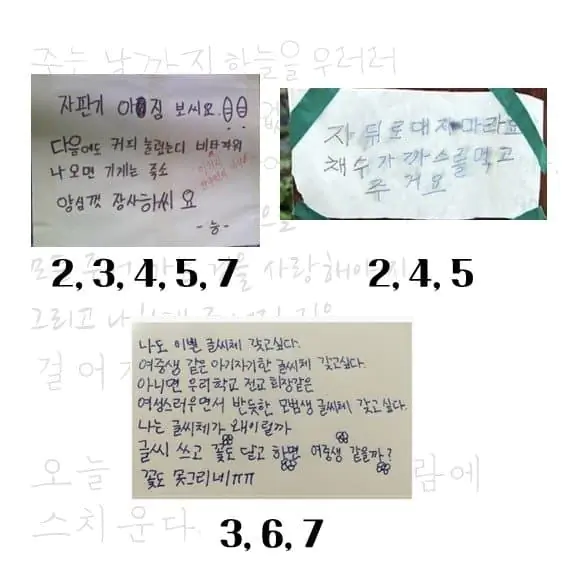 주는 날까지하늘을우러러
자판기 아 짐 보씨요.
다음에도 커피 눌렀는디 비타파워
나오면 기게는 죽소
양심껏 장사하씨요
자 뒤로대지마라요
채수가 까스를먹고
주거요
2, 3, 4, 5, 7
2, 4, 5
모든 사랑해야지
그리고
걸어가
나도 이쁜 글씨체 갖고싶다.
여중생 같은 아기자기한 글씨체 갖고싶다.
아니면 우리학교 전교 회장같은
여성스러우면서 반듯한 모범생 글씨체 갖고싶다.
나는 글씨체가 왜이럴까
글씨 쓰고 꽃도 달고 하면 여중생 같을까?
꽃도 못그리네ㅠㅠ
오늘 람에
스치운다.
3, 6, 7